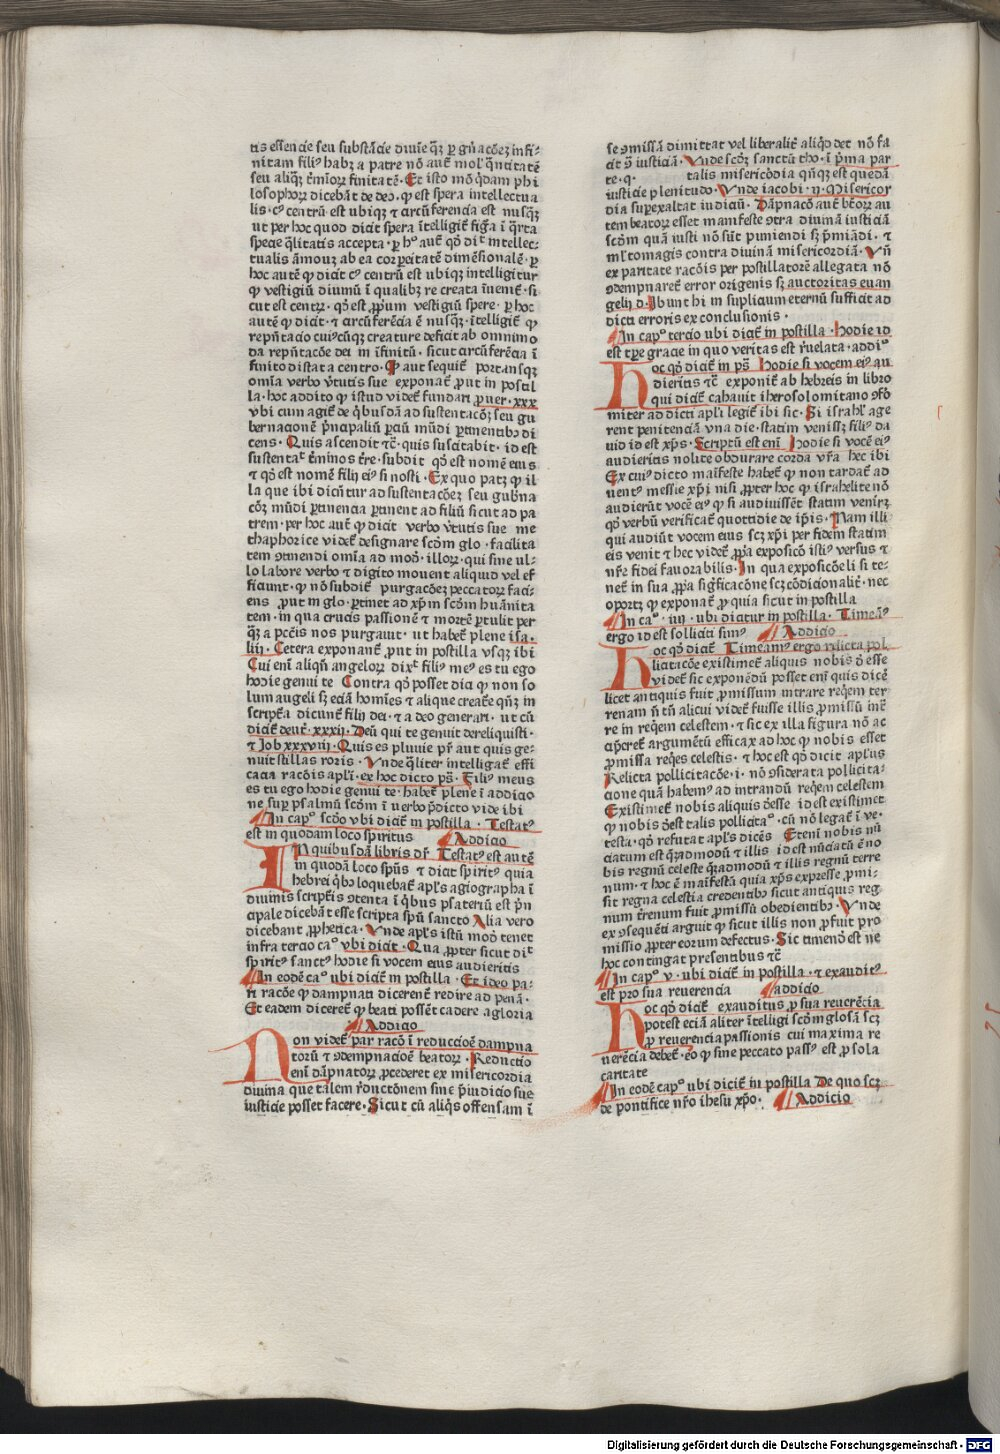 tis essencie seu substācie diuīe qʒ ꝑ gn̄acōeʒ infi⸗
nitam filiꝰ habʒ a patre nō aut̄ molꝰ q̄ntitatē
seu aliqʒ t̄mīoꝝ finitatē· Et isto mō q̄dam phi
losophoꝝ dicebāt de deo· ꝙ est spera intellectua
lis· cꝰ centrū est ubiqʒ ⁊ arcūferencia est nusqʒ
ut per hoc quod dicit̄ spera ītelligit̄ fig̃a ī q̄rta
specie q̄litatis accepta· ꝑ hͦ aut̄ qd̄ diᵗ intellec⸗
tualis āmouꝫ ab ea corꝑeitatē dimēsionalē· ꝑ
hoc autē ꝙ dicit̄ cꝰ centrū est ubiqʒ intelligitur
ꝙ vestigiū diuinū ī qualibʒ re creata īuenit̄· si
cut est centrꝫ· qd̄ est ꝓpʼum vestigiū spere· ꝑ hoc
autē ꝙ dicit̄· ⁊ arcūferēcia ē nusqʒ· ītelligit̄ ꝙ
reputacio cuiꝰcūqʒ creature deficit ab omnimo
da reputacōe dei in īfinitū· sicut arcūferēcia ī
finito distat a centro· Qd̄ aut̄ sequit̄ portansqʒ
omīa verbo vʼtutis sue exponat̄ ꝓut in postil
la· hoc addito ꝙ istud videt̄ fundari ꝓuer· xxx
vbi cum agit̄ de qʼbusdā ad sustentacōʒ seu gu
bernacionē pʼncipaliū ꝑciū mūdi ꝑtinentibꝰ di
cens· Quis ascendit ⁊c̄· quis suscitabit· id est
sustentaᵗ t̄minos t̄re· subdit qd̄ est nomē eius
⁊ qd̄ est nomē filij eiꝰ si nosti· Ex quo patʒ ꝙ il
la que ibi dicūtur ad sustentacōeʒ seu gubn̄a
cōʒ mūdi ꝑtinencia ꝑtinent ad filiū sicut ad pa
trem· per hoc aut̄ ꝙ dicit verbo vʼtutis sue me
thaphorice videt̄ designare scd̄m glo· facilita
tem ꝯtinendi omīa ad modū illoꝝ· qui sine ul⸗
lo labore verbo ⁊ digito mouent aliquid vel ef
ficiunt· ꝙ nō subdit̄ purgacōeʒ peccatoꝝ faci⸗
ens ꝓut in glo· ꝑtinet ad xp̄m scd̄m hūanita
tem· in qua crucis passionē ⁊ mortē ꝑtulit per
qʒ a pcc̄is nos purgauit· ut habet̄ plene isa·
liij· Cetera exponant̄ ꝓut in postilla vsqʒ ibi
Cui enī aliqn̄ angeloꝝ dixᵗ filiꝰ meꝰ es tu ego
hodie genui te Contra qd̄ posset dici ꝙ non so
lum angeli sʒ eciā homīes ⁊ alique creat̄e qn̄qʒ in
scriptʼa dicunt̄ filij dei· ⁊ a deo generari· ut cū
dicit̄ deut̄· xxxij· Deū qui te genuit dereliquisti·
⁊ Job xxxviij· Quis es pluuie pr̄ aut quis ge⸗
nuit stillas roris· Vnde qʼliter intelligat̄ effi
cacia racōis apl̄i· ex hoc dicto ps̄· Filiꝰ meus
es tu ego hodie genui te· habet̄ plene ī addicio
ne suꝑ psalmū scd̄m ī verbo p̄dicto vide ibi
In capͦ scd̄o vbi dicit̄ in postilla· Testatꝰ
est in quodam loco spiritus Addicio
IN quibusdā libris dr̄ Testatꝰ est autē
in quodā loco spūs ⁊ dicit̄ spiritꝰ quia
hebrei qʼbꝰ loquebat̄ apl̄s agiographa ī
diuinis scriptʼis ꝯtenta ī qʼbus psateriū est pʼn
cipale dicebāt esse scripta spū sancto Alia vero
dicebant ꝓphetica· Vnde apl̄s istū modū tenet
infra tercio caͦ vbi dicit· Qua ꝓpter sicut diᵗ
spiritꝰ sanctꝰ hodie si vocem eius audieritis
In eodē caͦ ubi dicit̄ in postilla· Et ideo pa⸗
ri racōe ꝙ dampnati dicerent̄ redire ad penā·
Et eadem diceret̄ ꝙ beati possēt cadere a gloria
Addicio
Non videt̄ par racō ī reduccioē dampna
torū ⁊ ꝯdempnacioē beatoꝝ· Reductio
enī dāpnatoꝝ ꝓcederet ex misericordia
diuina que talem rʼductōnem sine pʼiudicio sue
iusticie posset facere· Sicut cū aliqʼs offensam ī
se ꝯmissā dimittat vel liberalit̄ aliqd̄ det nō fa
cit ꝯ̄ iusticiā· Vnde scd̄ʒ sanctū tho· ī pʼma par
te· q· talis misericōdia qn̄qʒ est quedā
iusticie plenitudo· Vnde iacobi· ij· Misericor
dia suꝑexaltat iudiciū· Dāpnacō aut̄ btōꝝ au
tem beatoꝝ esset manifeste ꝯtra diuinā iusticiā
scd̄m quā iusti nō sūt puniendi sʒ pʼmiādi· ⁊
ml̄tomagis contra diuinā misericordiā· Vn̄
ex paritate racōis per postillatorē allegata nō
ꝯdempnaret̄ error origenis sʒ auctoritas euan
gelij d· Ibunt hi in supliciū eternū sufficit ad
dicti erroris exconclusionis·
In capͦ tercio ubi dicit̄ in postilla· Hodie id
est tp̄e gracie in quo veritas est rʼuelata· addiͦ
Hoc qd̄ dicit̄ in ps̄ Hodie si vocem eiꝰ au
dieritis ⁊c̄ exponit̄ ab hebreis in libro
qui dicit̄ cahauit iherosolomitano ꝯfō
miter ad dicti apl̄i legit̄ ibi sic· Si israhl̓ age
rent penitenciā vna die· statim venissʒ filiꝰ da
uid id est xp̄s· Scriptū est enī Hodie si vocē eiꝰ
audieritis nolite obdurare corda vrʼa hec ibi
Ex cuiꝰ dicto maīfeste habet̄ ꝙ non tardat̄ ad
uentꝰ messie xp̄i nisi ꝓpter hoc ꝙ israhelite nō
audierūt vocē eiꝰ ꝙ si audiuissēt statim venirʒ
qd̄ verbū verificat̄ quottidie de ip̄is· Nam illi
qui audiūt vocem eius scʒ xp̄i per fidem statim
eis venit ⁊ hec videt̄ ꝓpʼa exposicō istiꝰ versus ⁊
nrʼe fidei fauorabilis· In qua exposicōe li si te⸗
net̄ in sua ꝓpʼa sigʼficacōne scʒ cōdicionalit̄· nec
oportʒ ꝙ exponat̄ ꝓ quia sicut in postilla
In caͦ· iiij· ubi dicitur in postilla· Timeamꝰ
ergo id est solliciti simꝰ Addicio
Hoc qd̄ dicit̄ Timeamꝰ ergo relicta pol
licitacōe existimet̄ aliquis nobis dʼesse
videt̄ sic exponēdū posset enī quis dicē
licet antiquis fuit ꝓmissum intrare reqʼem ter
renam n̄ tn̄ alicui videt̄ fuisse illis ꝓmissū int̄
re in reqʼem celestem· ⁊ sic ex illa figura nō ac
cipʼeret̄ argumētū efficax ad hoc ꝙ nobis esset
ꝓmissa reqʼes celestis· ⁊ hoc est qd̄ dicit apl̄us
Relicta pollicitacōe· i· nō ꝯsiderata pollicita⸗
cione quā habemꝰ ad intrandū reqʼem celestem
Existimet̄ nobis aliquis dʼesse id est existimet̄
ꝙ nobis dʼest talis pollicitaᵒ· cū nō legat̄ ī ve·
testa· qd̄ refutat apl̄s dicēs Etenī nobis nū
ciatum est qʒadmodū ⁊ illis id est nūciatū ē no
bis regnū celeste qʒadmodū ⁊ illis regnū terre
num· ⁊ hoc ē maīfestū quia xp̄s expresse ꝓmi⸗
sit regna celestia credentibꝰ sicut antiquis reg
num t̄renum fuit ꝓmissū obedientibꝰ· Vnde
ex ꝯsequēti arguit ꝙ sicut illis non ꝓfuit pro
missio ꝓpter eorum defectus· Sic timendū est ne
hoc contingat presentibus ⁊c̄
In capͦ v· ubi dicit̄ in postilla· ⁊ exauditꝰ
est pro sua reuerencia addicio
Hoc qd̄ dicit̄ exauditus ꝓ sua reuerēcia
potest eciā aliter ītelligi scd̄m glosā scʒ
ꝓ reuerencia passionis cui maxima re
uerēcia debet̄· eo ꝙ sine peccato passꝰ est ꝓ sola
caritate
In eodē capͦ ubi dicit̄ in postilla De quo scʒ
de pontifice nrʼo ihesu xp̄o· Addicio
Digitalisierung gefördert durch die Deutsche Forschungsgemeinschaft - DFG